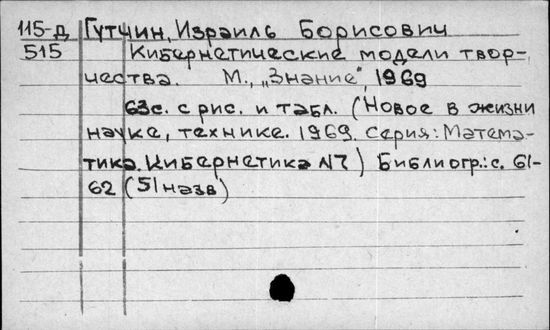 115-д Гутчин, Израиль Борисович
515 Кибернетические модели твор-
чества. М., „Знание“, 1969
63с. с рис. и табл. (Новое в жизни
науке, технике. 1969. Серия: Матема-
тика. Кибернетика №7) Библиогр.: с. 61-
62 (51 назв)